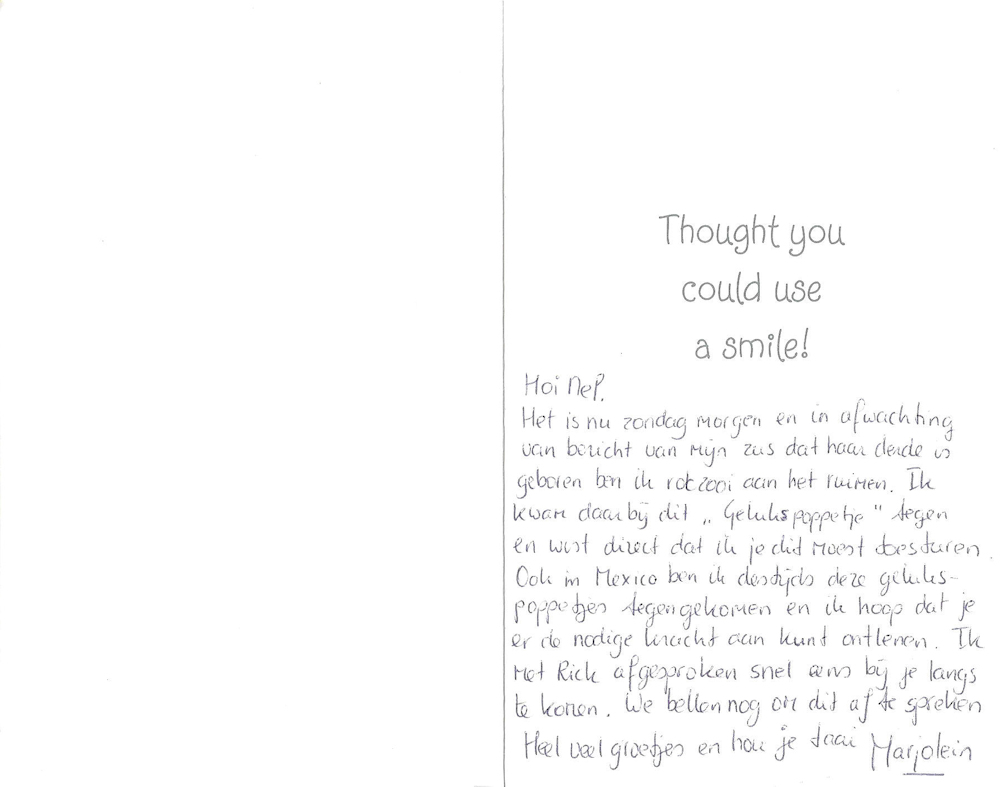 Thought you
could use
a smile!
Hoi Nel,
Het is nu zondag morgen en in afwachting
van bericht van mijn zus dat haar derde is
geboren ben ik rotzooi aan het ruimen. Ik
kwam daarbij dit „Gelukspoppetje" tegen
en wist direct dat ik je dit moest toesturen.
Ook in Mexico ben ik destijds deze geluks-
poppetjes tegengekomen en ik hoop dat je
er de nodige kracht aan kunt ontlenen. Ik
met Rick afgesproken snel eens bij je langs
te komen. We bellen nog om dit af te spreken
Heel veel groetjes en hou je taai Marjolein